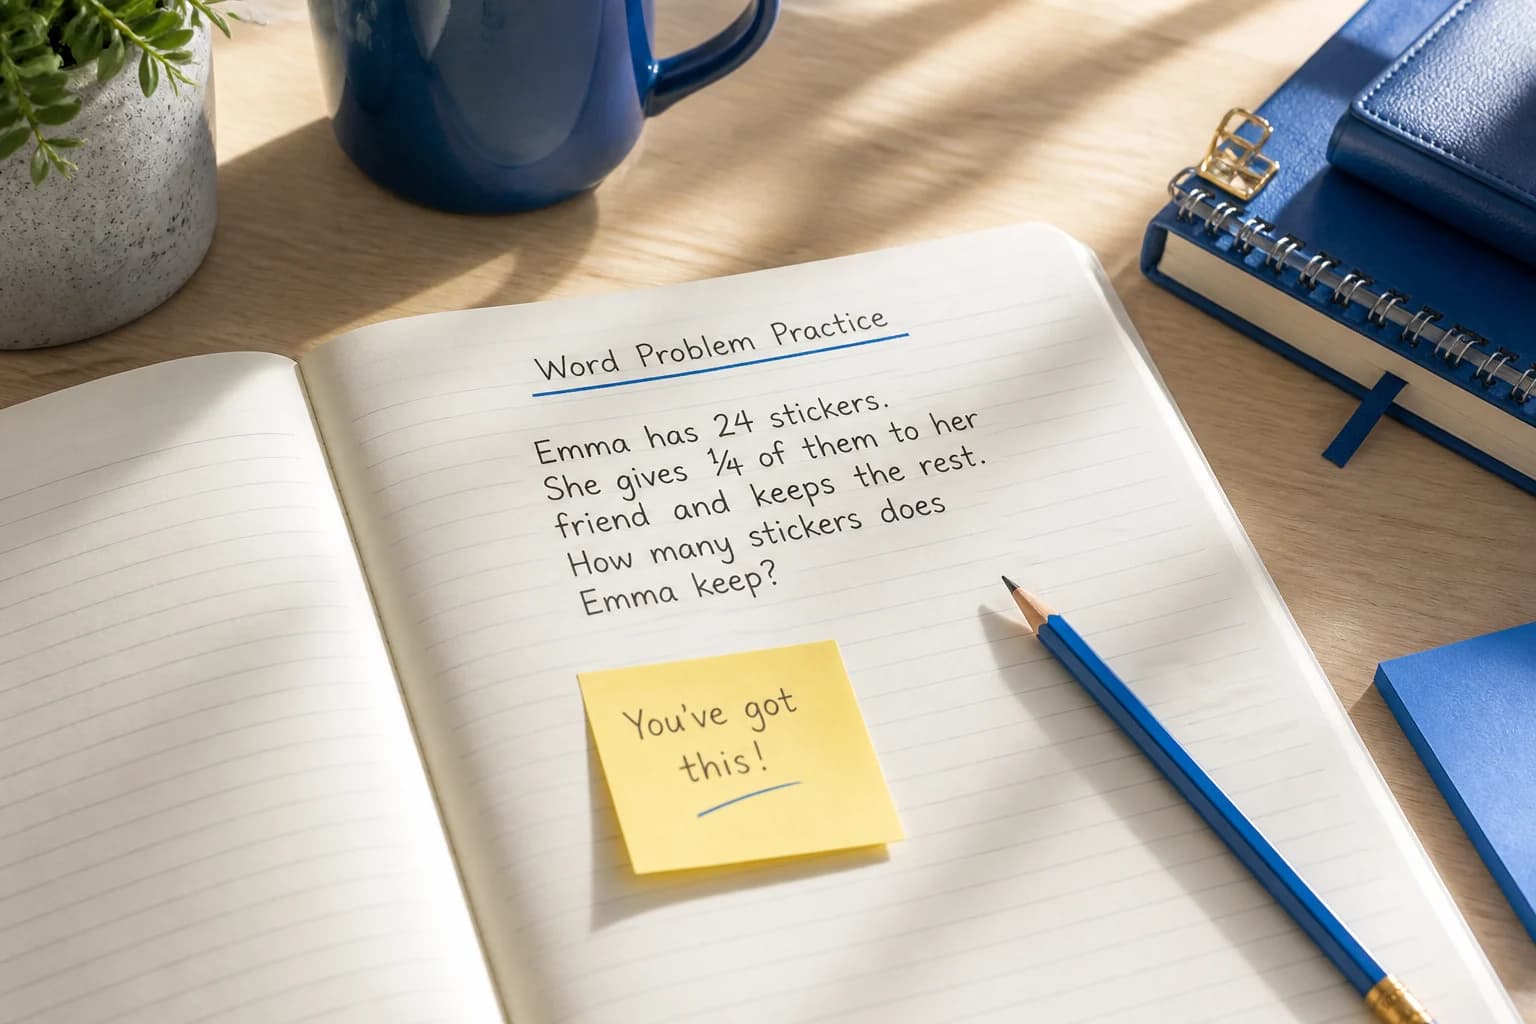 Word Problem Practice
Emma has 24 stickers.
She gives ¼ of them to her
friend and keeps the rest.
How many stickers does
Emma keep?
You've got
this!